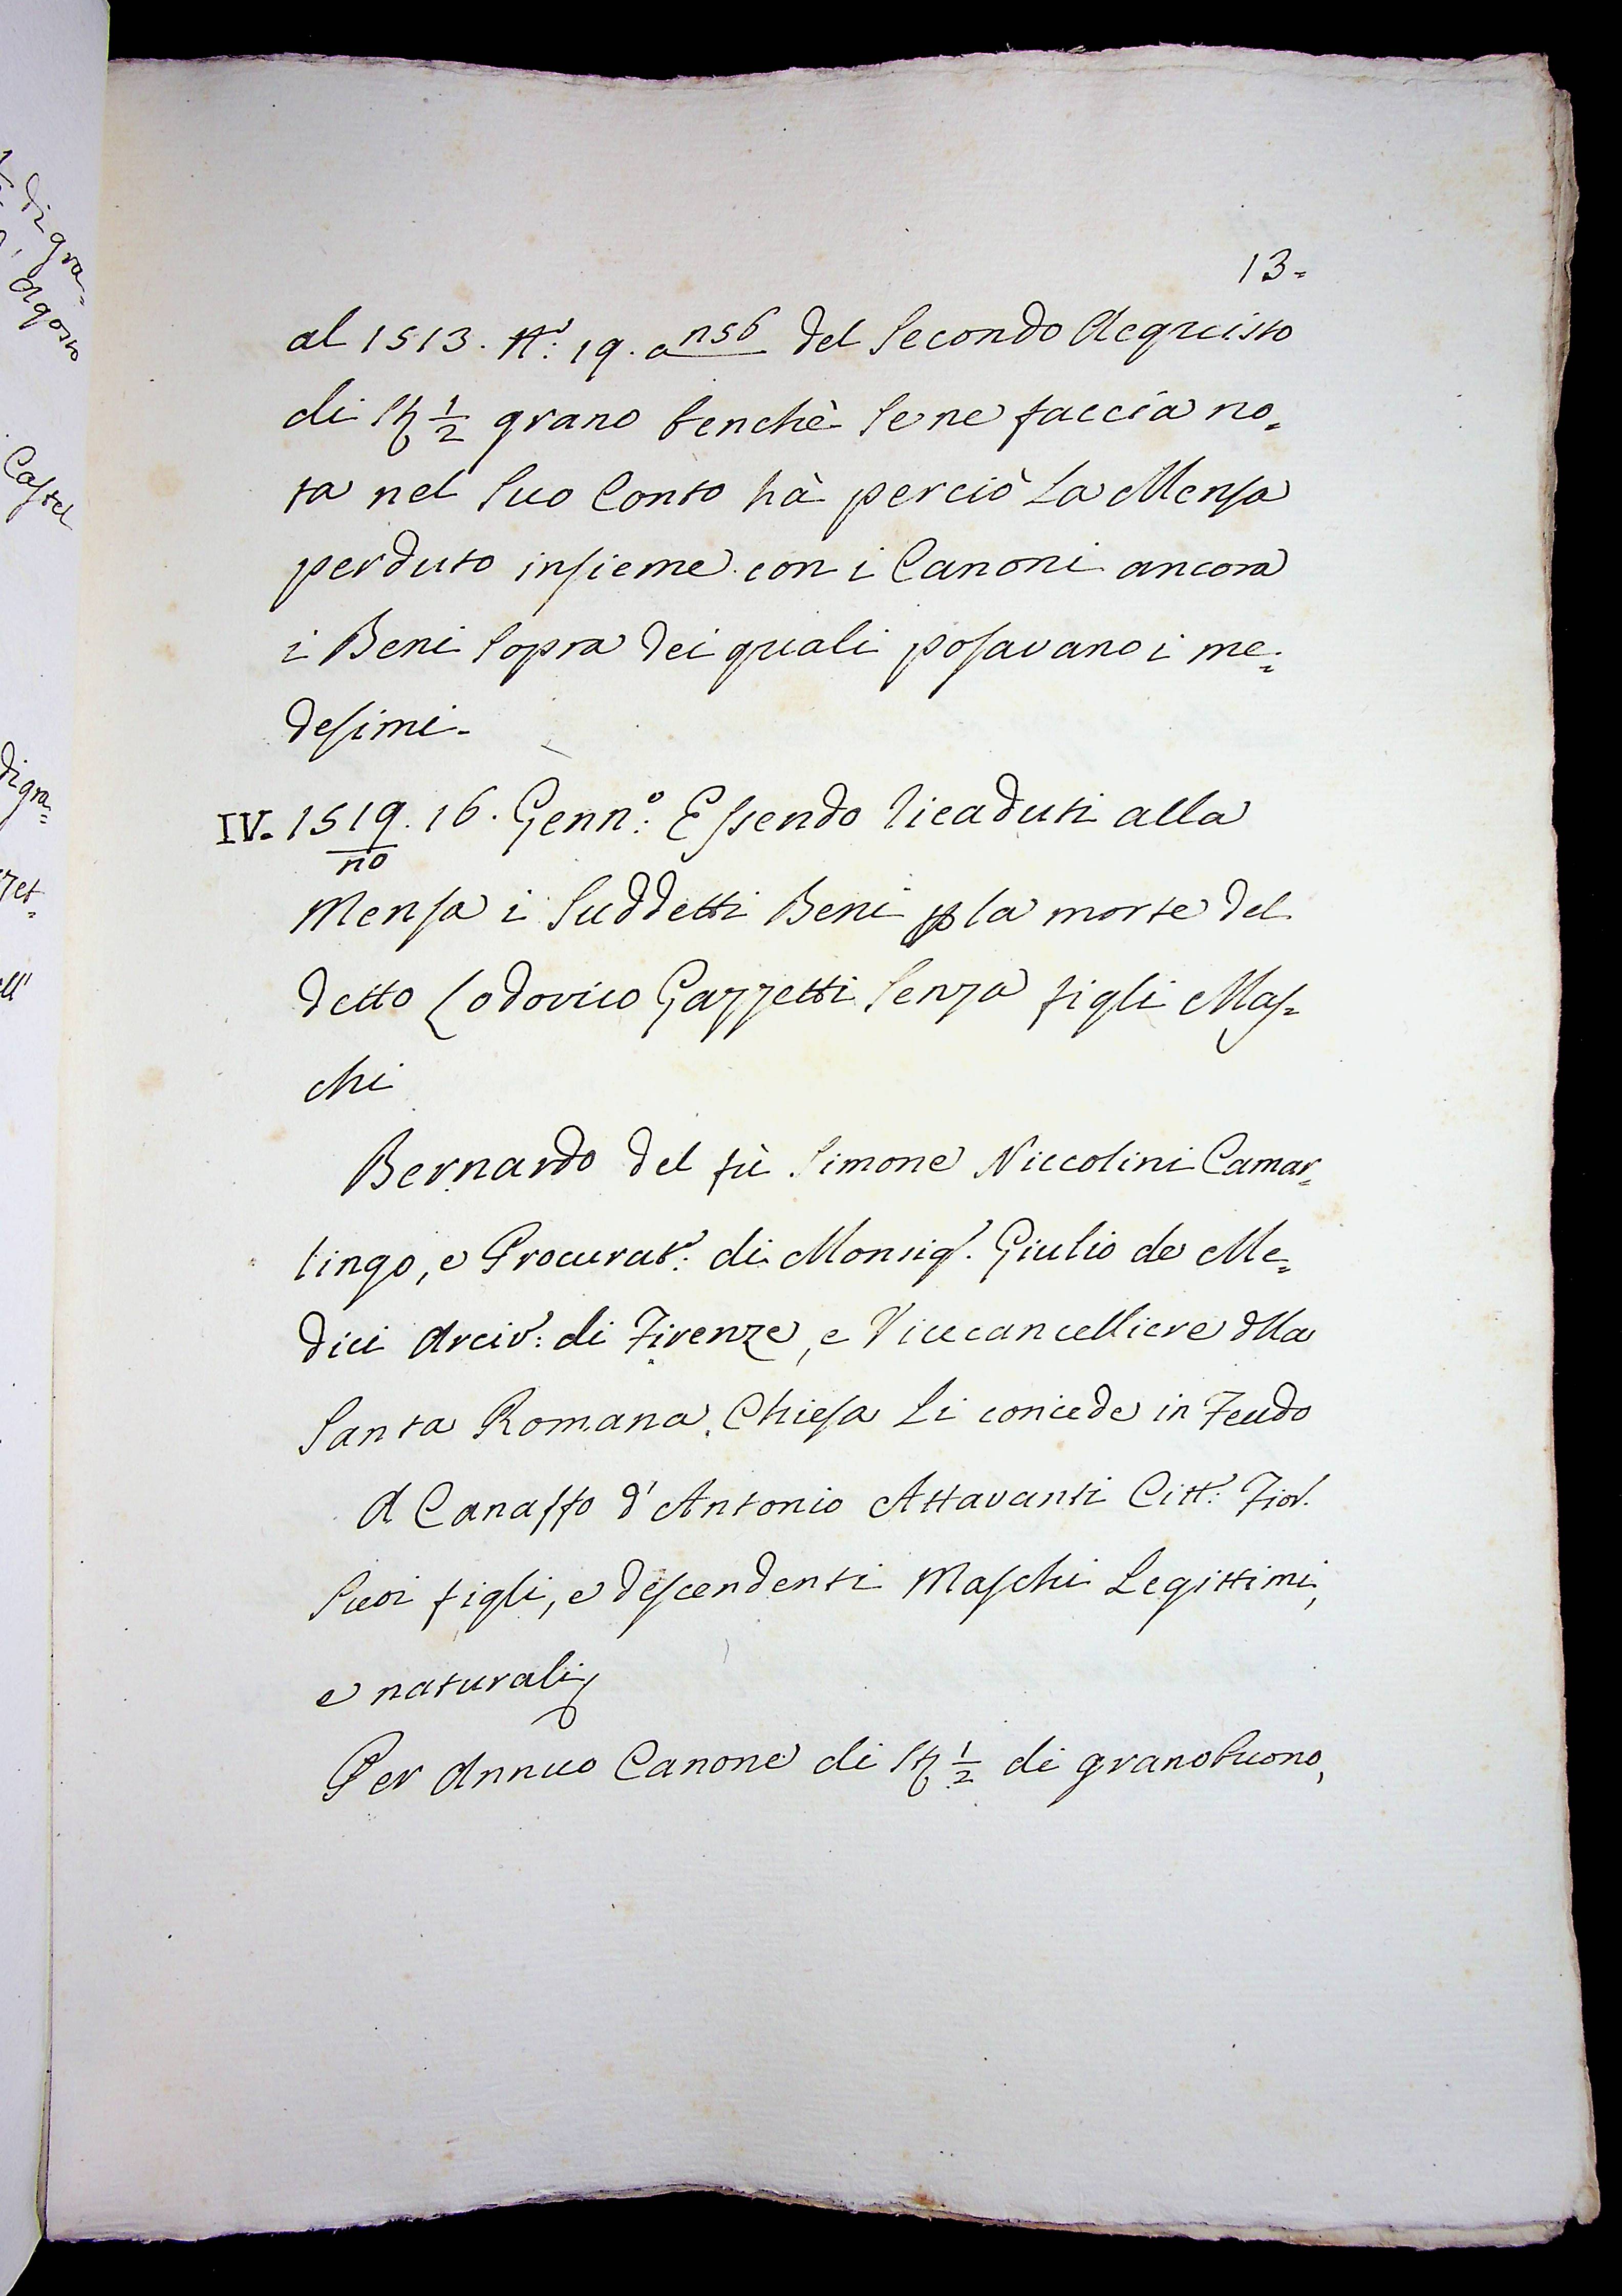 13=
al 1513. At: 19. a n56 del Secondo Acquisto
di St ½ grano benchè Se ne faccia no=
ta nel Suo Conto hà perciò La Mensa
perduto insieme con i Canoni ancora
i Beni Sopra dei quali posavano i me=
desimi.
IV. 1519. 16. Genn.o: Essendo Ricaduti alla
no
Mensa i Suddetti Beni p la morte del
detto Lodovico Gazzetti Senza figli Mas=
chi
Bernardo del fù Simone Niccolini Camar=
lingo, e Procurat.e: di Monsig.r Giulio de Me=
dici Arciv.: di Firenze, e Vicecancelliere dlla
Santa Romana Chiesa Li concede in Feudo
A Canaffo d'Antonio Attavanti Citt.: Fior.
Suoi figli, e descendenti Maschi Legittimi,
e naturali
Per Annuo Canone di St ½ di grano buono,
di gra=
Agosto
Castel
di gra=
zet=
ell'